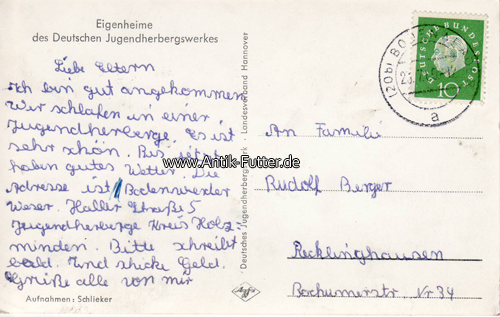 Eigenheime
des Deutschen Jugendherbergswerkes
Liebe Eltern
Ich bin gut angekommen
Wir schlafen in einer
Jugendherberge. Es ist
sehr schön. Bis jetzt
haben gutes Wetter. Die
Adresse ist Bodenwerder
Weser. Haller Straß 5
Jugendherberge Kreis Holz-
minden. Bitte schreibt
bald. Und schicke Geld.
Grüße alle von mir
Aufnahmen: Schlieker
Deutsches Jugendherbergswerk · Landesverband Hannover
www.Antik-Futter.de
(20b) BO
a
DEUTSCHE BUNDESPOST
10
An Familie
Rudolf Berger
Recklinghausen
Bochumerstr. Nr 34